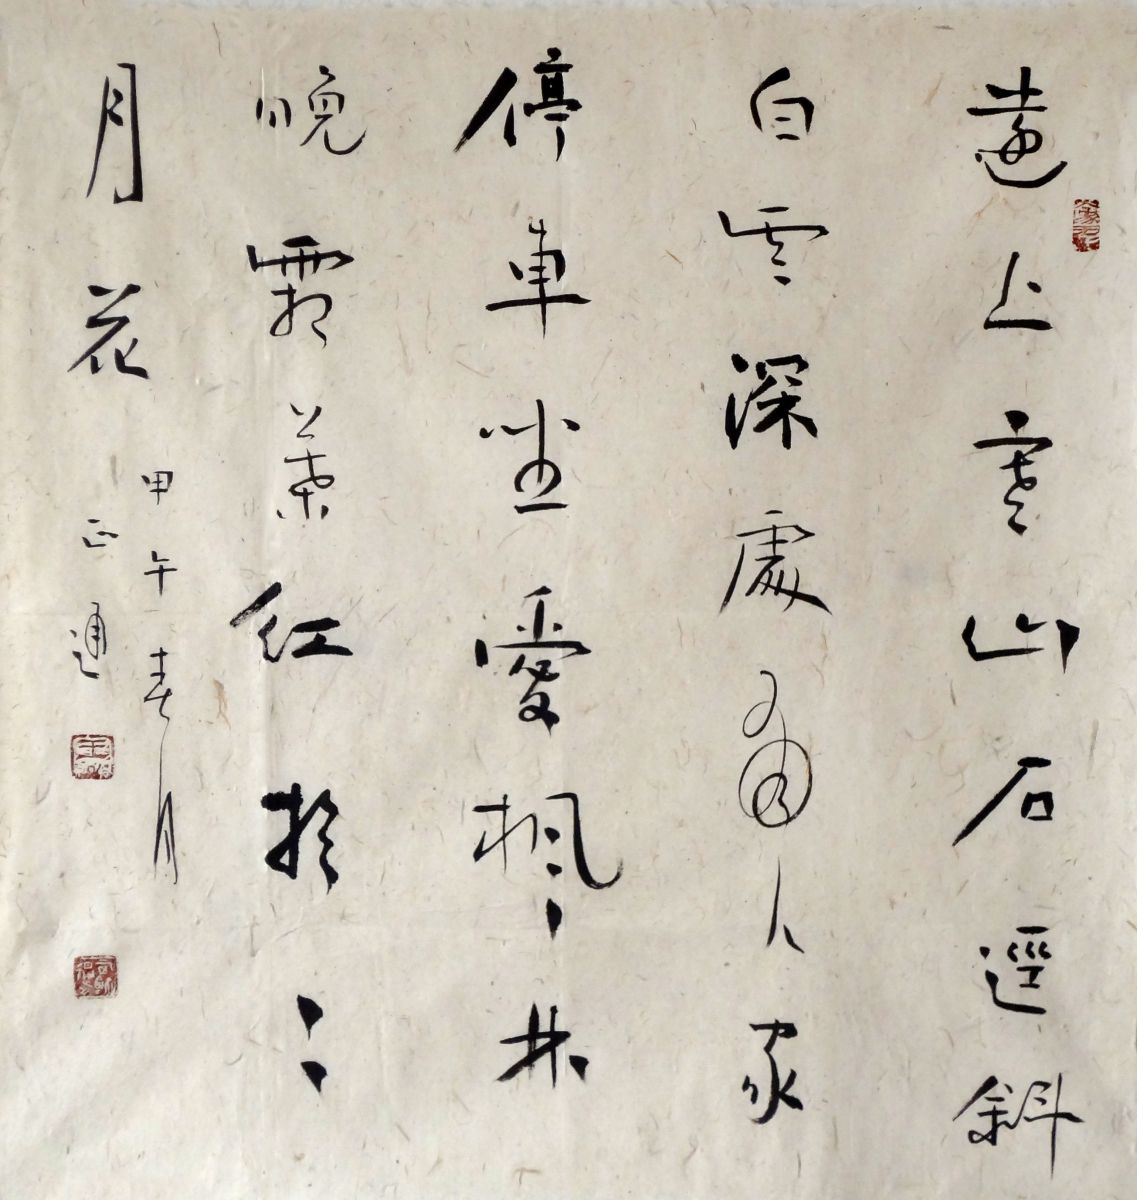 遠上寒山石逕斜
白雲深處有人家
停車坐愛楓林
晚霜葉紅於二
月花
甲午春月
正通